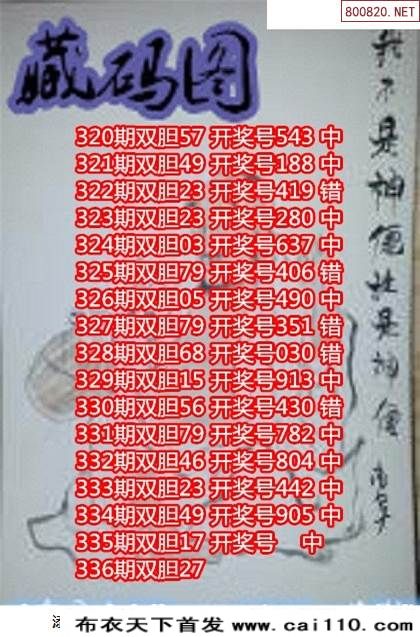 800820.NET
藏码图
我不是神但找是神便
320期双胆57 开奖号543 中
321期双胆49 开奖号188 中
322期双胆23 开奖号419 错
323期双胆23 开奖号280 中
324期双胆03 开奖号637 中
325期双胆79 开奖号406 错
326期双胆05 开奖号490 中
327期双胆79 开奖号351 错
328期双胆68 开奖号030 错
329期双胆15 开奖号913 中
330期双胆56 开奖号430 错
331期双胆79 开奖号782 中
332期双胆46 开奖号804 中
333期双胆23 开奖号442 中
334期双胆49 开奖号905 中
335期双胆17 开奖号 中
336期双胆27
布衣天下首发 www.cai110.com